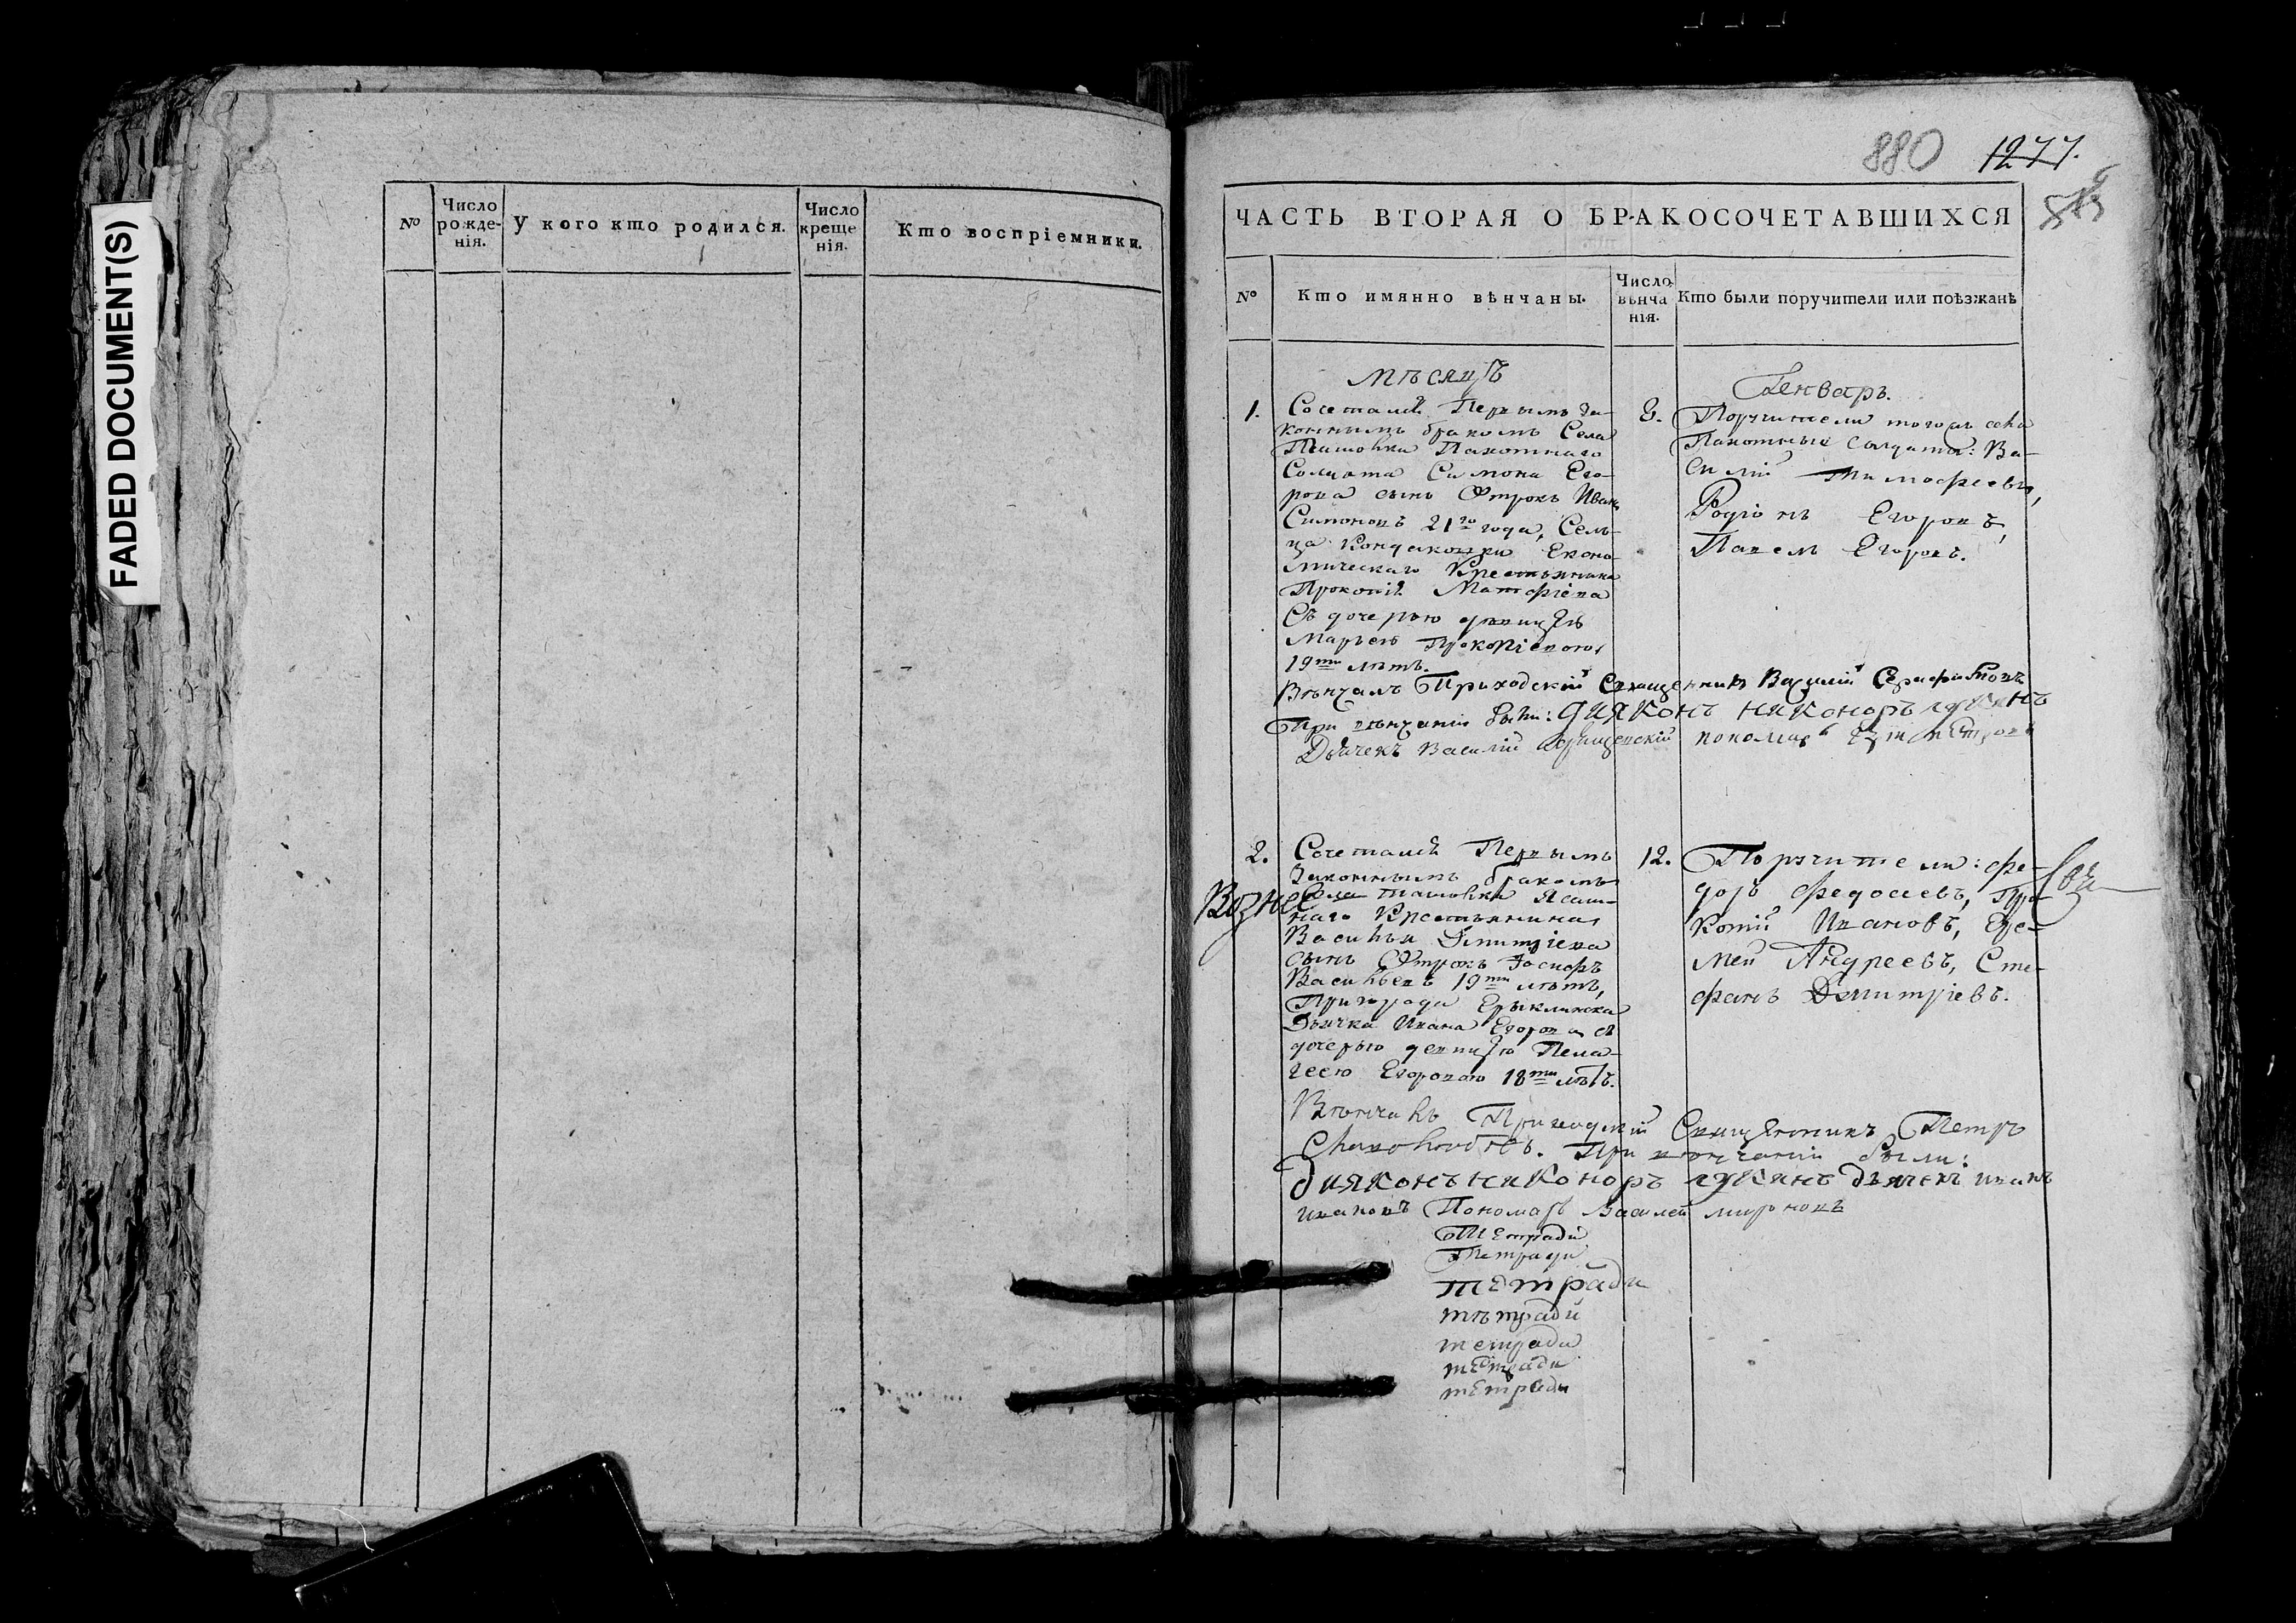 FADED DOCUMENT(S)
№ Число рожде-нія. У кого кто родился. Число креще нія. Кто воспріемники.
880 1277.
ЧАСТЬ ВТОРАЯ О БРАКОСОЧЕТАВШИХСЯ
№ Кто имянно вѣнчаны. Число вѣнча нія. Кто были поручители или поѣзжанѣ
мѣсяцъ
Генварь.
1. Сочетался Первымъ за-
коннымъ бракомъ Села
Пахотнаго
Солдата Симона Его-
рова сынъ Отрокъ Иванъ
Симоновъ 21го года, Сель-
ца Кондаковки Еконо-
мическаго Крестьянина
Прокопія Матфіева
Съ дочерью девицею
Марьею Прокопіевою,
19ти лѣтъ.
8. Поручители тогожъ села
Пахотные Солдаты: Ва-
силій Тимофѣевъ,
Родіонъ Егоровъ,
Павелъ Егоровъ.
Вѣнчалъ Приходскій Священникъ Василій
При вѣнчаніи были: Диаконъ никоноръ лукинъ
Дьячекъ Василій пономарь
2. Сочетался Первымъ
Законнымъ бракомъ
Села Ташовки Ясаш-
наго Крестьянина,
Василья Дмитріева
сынъ Отрокъ
Васильевъ 19ти лѣтъ,
Пригорода Ерыклинска
Дьячка Ивана Егорова съ
дочерью девицею Пела-
геею Егоровою 18ти лѣтъ.
Вознес
12. Поручители: Фе-
доръ Федосеевъ, Про-
копій Ивановъ, Ере-
мей Андреевъ, Сте-
фанъ Дмитріевъ.
Вѣнчалъ Приходскій Священникъ Петръ
При вѣнчаніи были:
диаконъ никоноръ лукинъ дьячекъ иванъ
ивановъ Пономарь Василей мироновъ
Тетради
Тетради
тетради
тѣтради
тетради
тетради
тетради